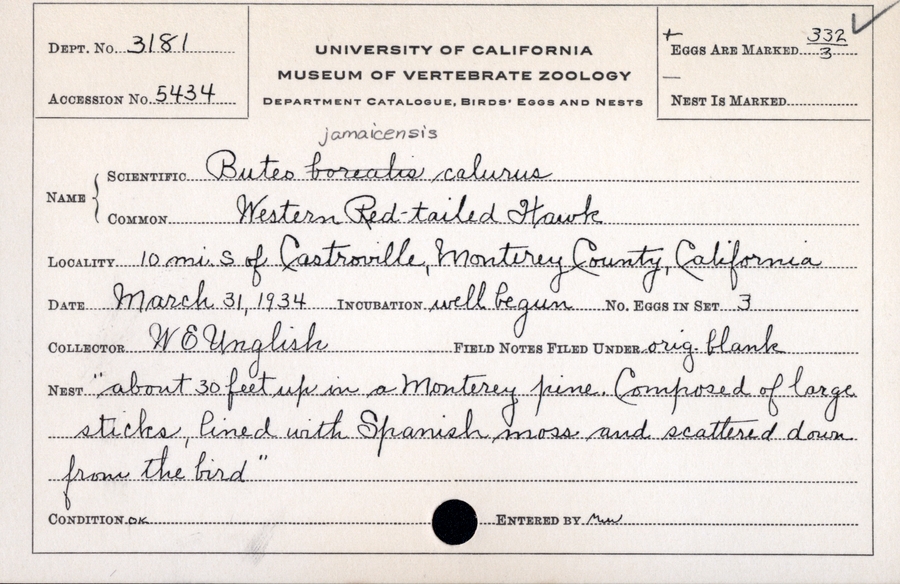 Dept. No. 3181
Accession No. 5434
UNIVERSITY OF CALIFORNIA
MUSEUM OF VERTEBRATE ZOOLOGY
Department Catalogue, Birds' Eggs and Nests
+ Eggs Are Marked 332/3
— Nest Is Marked
jamaicensis
Name { Scientific Buteo borealis calurus
Common Western Red-tailed Hawk
Locality 10 mi. S of Castroville, Monterey County, California
Date March 31, 1934 Incubation well begun No. Eggs in Set 3
Collector W E Unglish Field Notes Filed Under orig. blank
Nest "about 30 feet up in a Monterey pine. Composed of large
sticks, lined with Spanish moss and scattered down
from the bird"
Condition OK Entered by